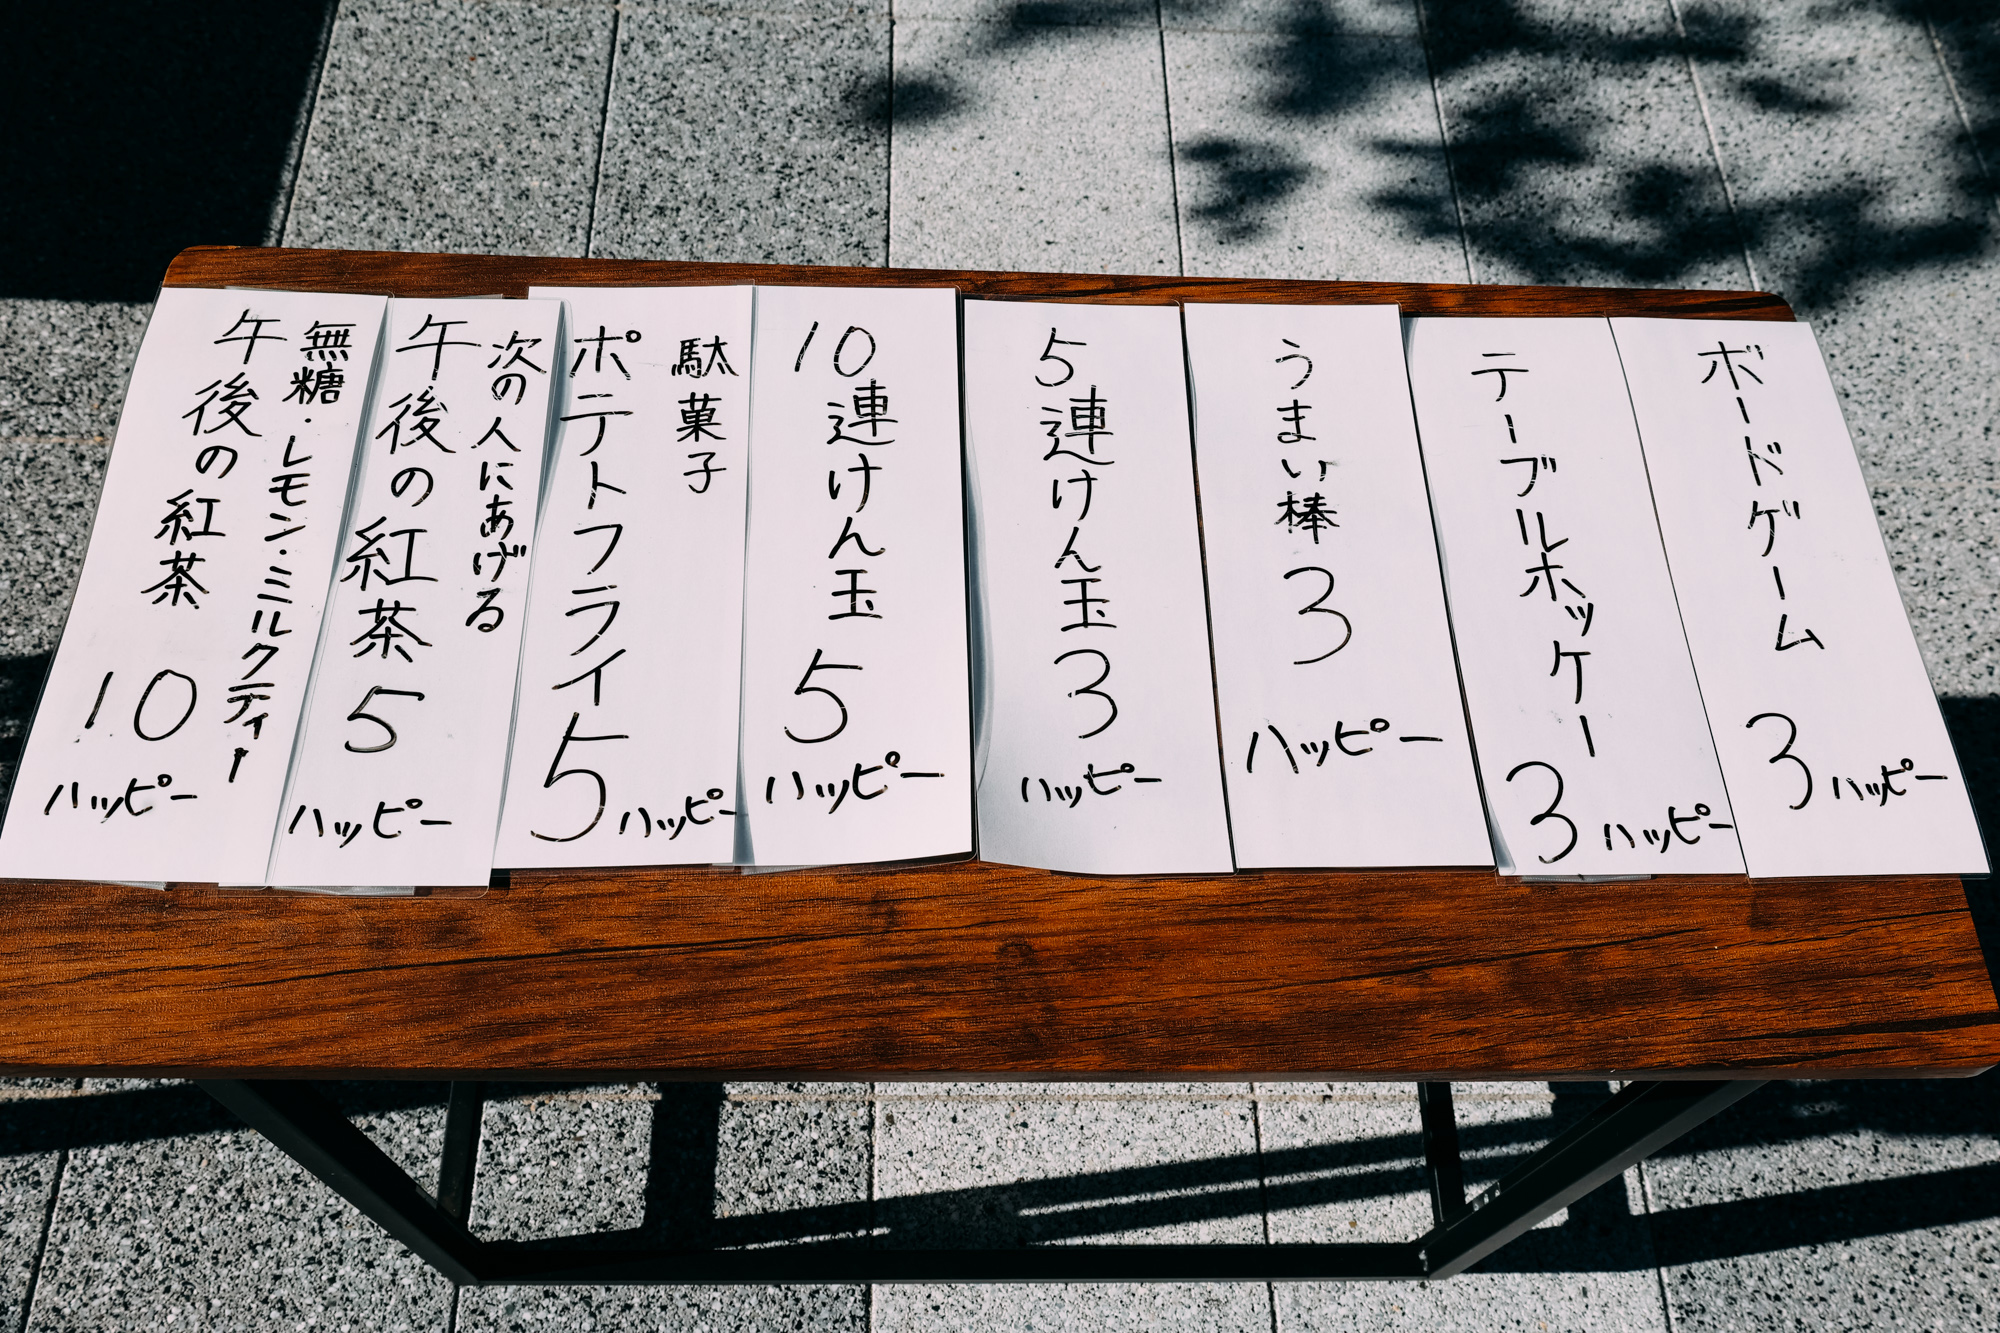 ボードゲーム
3 ハッピー
テーブルホッケー
3 ハッピー
うまい棒 3
ハッピー
5連けん玉 3
ハッピー
10連けん玉 5
ハッピー
駄菓子
ポテトフライ
5 ハッピー
次の人にあげる
午後の紅茶 5
ハッピー
無糖・レモン・ミルクティー
午後の紅茶 10
ハッピー